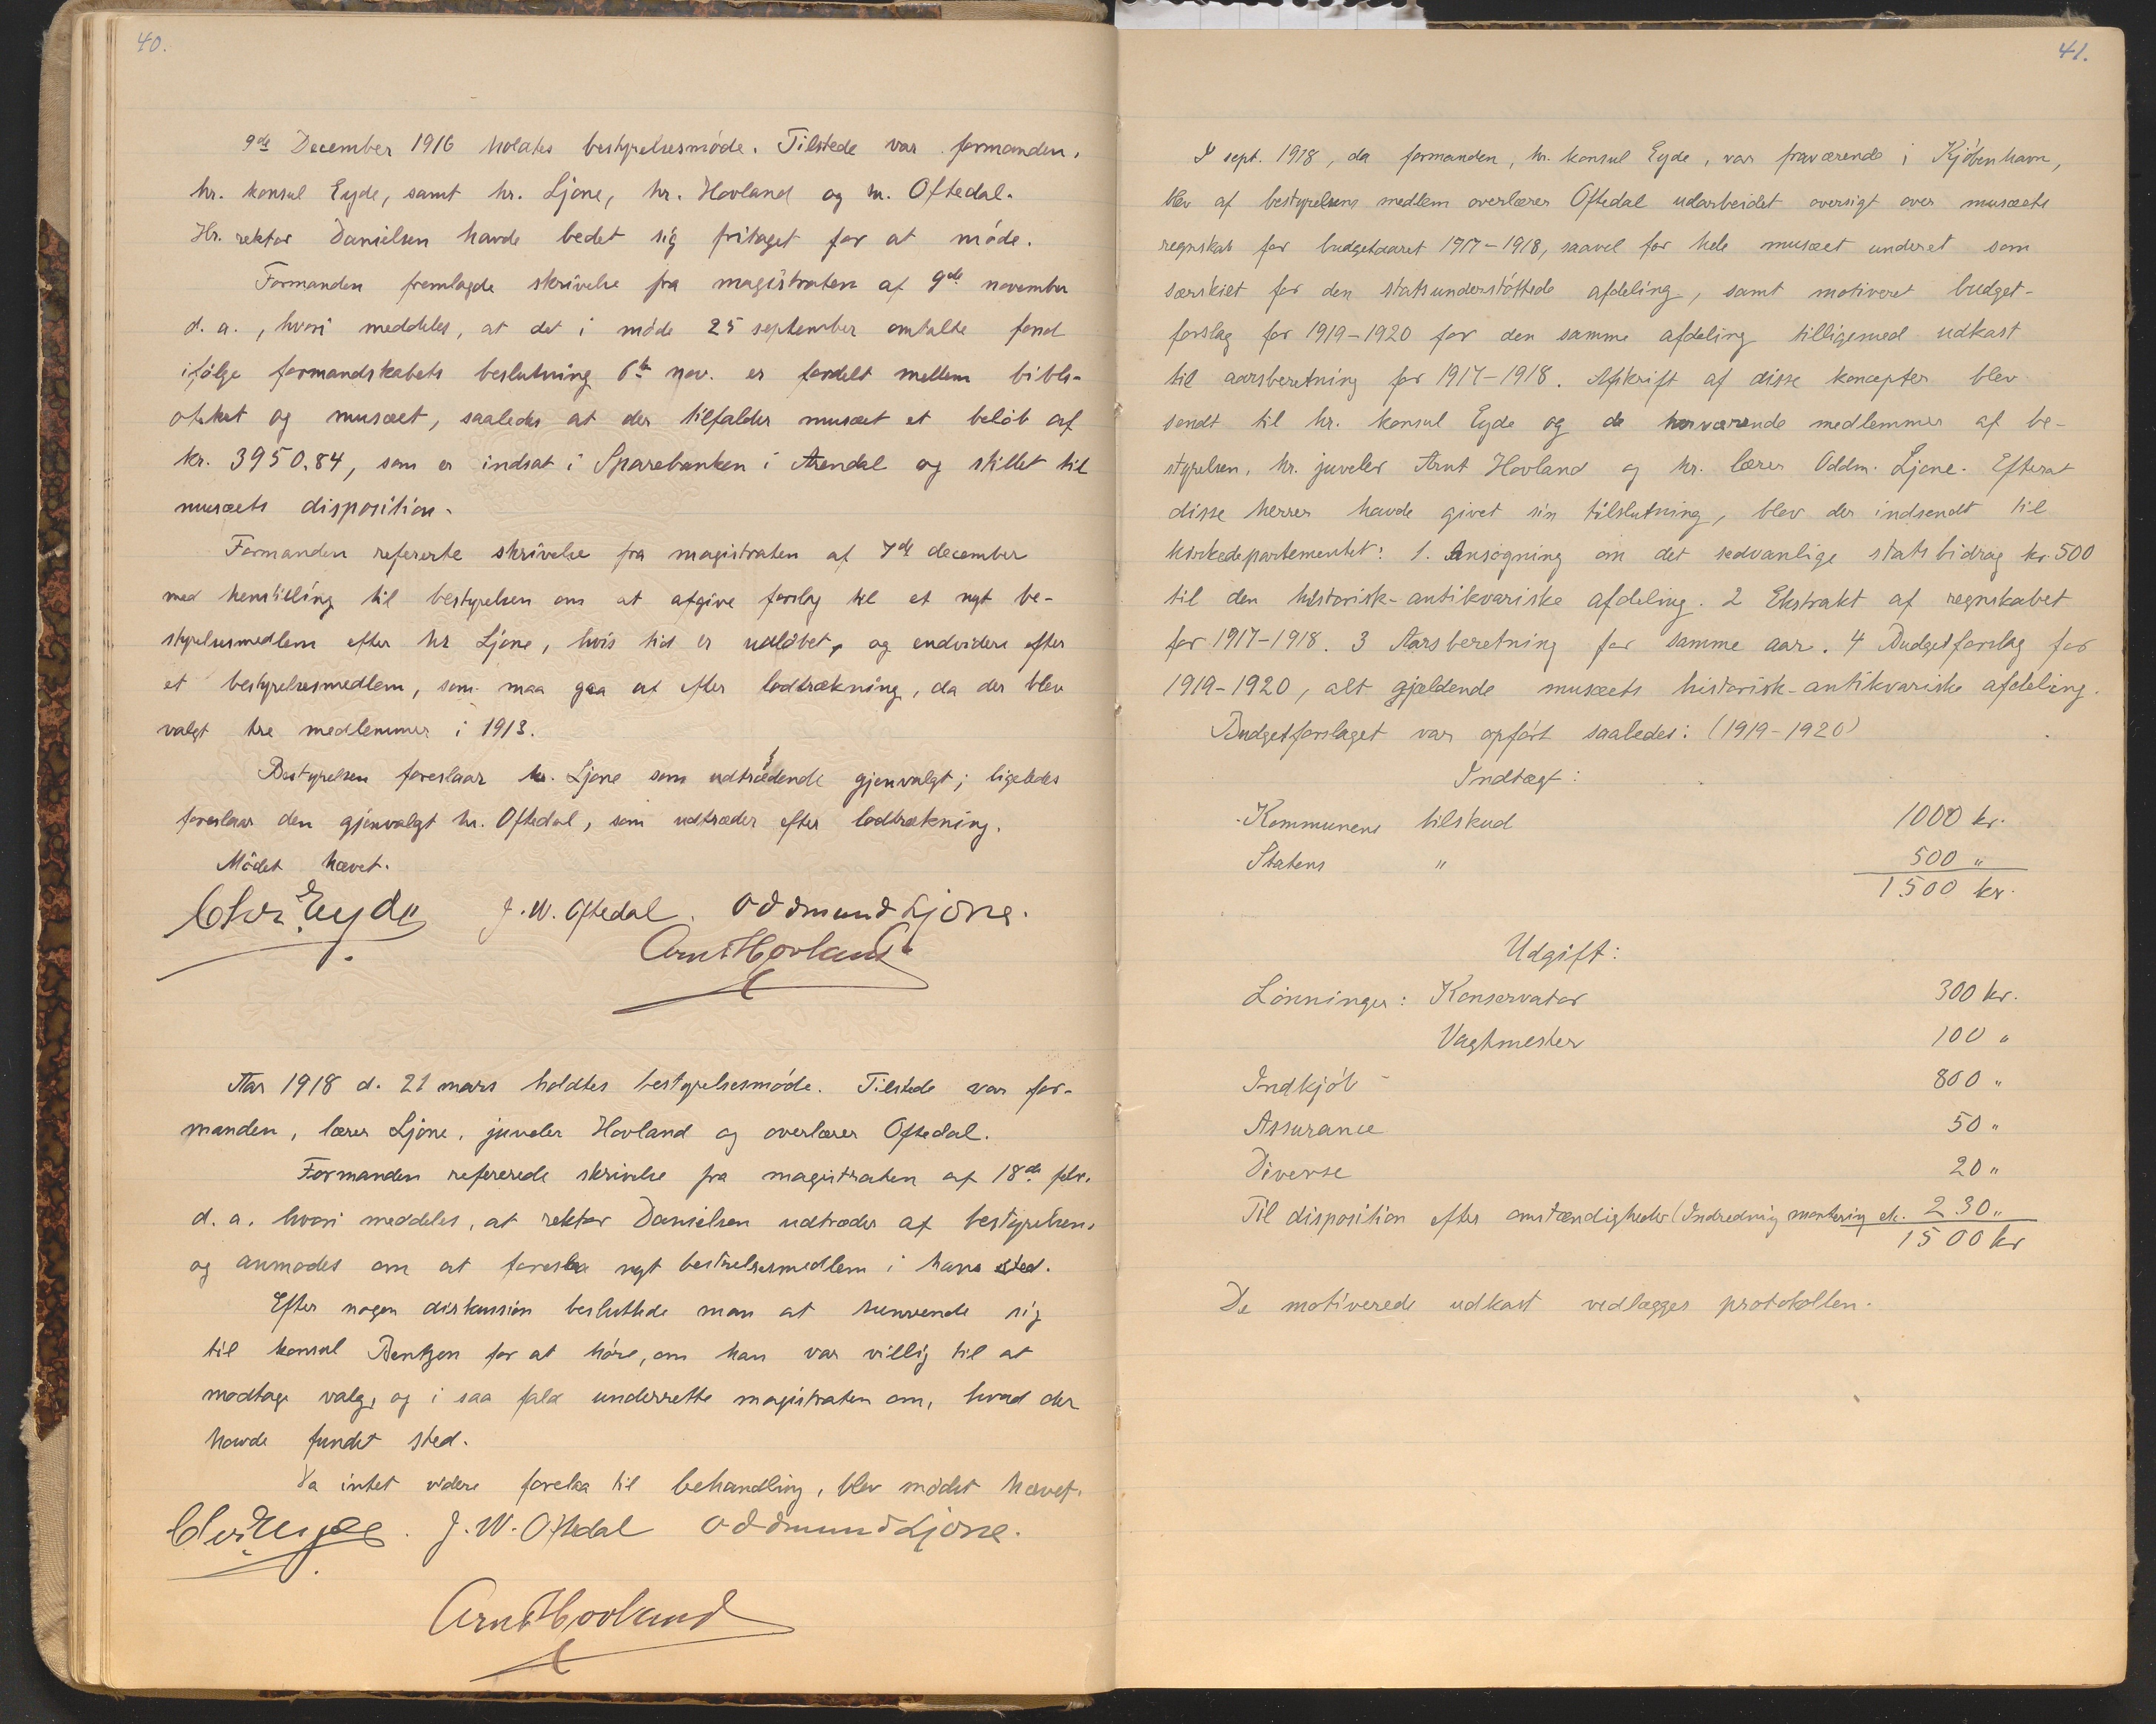 40.
9de December 1916 holdtes bestyrelsesmöde. Tilstede var formanden,
hr. konsul Eyde, samt hr. Ljone, hr. Hovland og u. Oftedal.
Hr. rektor Danielsen havde bedet sig fritaget for at möde.
Formanden fremlagde skrivelse fra magistraten af 9de november
d. a., hvori meddeles, at det i möde 25 september omtalte fond
ifölge formandskabets beslutning 6te nov. er fordelt mellem bibli-
oteket og musæet, saaledes at der tilfalder musæet et belöb af
kr. 3950.84, som er indsat i Sparebanken i Arendal og stillet til
musæets disposition.
Formanden refererte skrivelse fra magistraten af 7de december
med henstilling til bestyrelsen om at afgive forslag til et nyt be-
styrelsesmedlem efter hr Ljone, hvis tid er udlöbet, og endvidere efter
et bestyrelsesmedlem, som maa gaa at efter lodtrækning, da der blev
valgt tre medlemmer i 1913.
Bestyrelsen foreslaar hr. Ljone som udtrædende gjenvalgt; ligeledes
foreslaar den gjenvalgt hr. Oftedal, som udtræder efter lodtrækning.
Mödet hævet.
Chr. Eyde J. W. Oftedal. Oddmund Ljone.
Arnt Hovland
Aar 1918 d. 21 mars holdtes bestyrelsesmöde. Tilstede var for-
manden, lærer Ljone, juveler Hovland og overlærer Oftedal.
Formanden refererede skrivelse fra magistraten af 18de febr.
d. a. hvori meddeles, at rektor Danielsen udtræder af bestyrelsen,
og anmodes om at foreslaa nyt bestrelsesmedlem i hans sted.
Efter nogen diskussion besluttede man at henvende sig
til konsul Bentzen for at höre, om han var villig til at
modtage valg, og i saa fald underrette magistraten om, hvad der
havde fundet sted.
Da intet videre forelaa til behandling, blev mödet hævet.
Chr. Eyde. J. W. Oftedal Oddmund Ljone.
Arnt Hovland
41.
I sept. 1918, da formanden, hr. konsul Eyde, var fraværende i Kjöbenhavn,
blev af bestyrelsens medlem overlærer Oftedal udarbeidet oversigt over musæets
regnskab for budgetaaret 1917-1918, saavel for hele musæet underet som
særskilt for den statsunderstöttede afdeling, samt motiveret budget-
forslag for 1919-1920 for den samme afdeling tilligemed udkast
til aarsberetning for 1917-1918. Afskrift af disse koncepter blev
sendt til hr. konsul Eyde og de herværende medlemmer af be-
styrelsen, hr. juveler Arnt Hovland og hr. lærer Oddm. Ljone. Efterat
disse herrer havde givet sin tilslutning, blev der indsendt til
kirkedepartementet: 1. Ansögning om det sedvanlige statsbidrag kr. 500
til den historisk-antikvariske afdeling. 2 Ekstrakt af regnskabet
for 1917-1918. 3 Aarsberetning for samme aar. 4 Budgetforslag for
1919-1920, alt gjældende musæets historisk-antikvariske afdeling.
Budgetforslaget var opfört saaledes: (1919-1920)
Indtægt:
Kommunens tilskud 1000 kr.
Statens " 500 "
1500 kr.
Udgift:
Lönninger: Konservator 300 kr.
Vagtmester 100 "
Indkjöb 800 "
Assurance 50 "
Diverse 20 "
Til disposition efter omstændigheder (Indredning montering etc. 230 "
1500 kr
De motiverede udkast vedlægges protokollen.